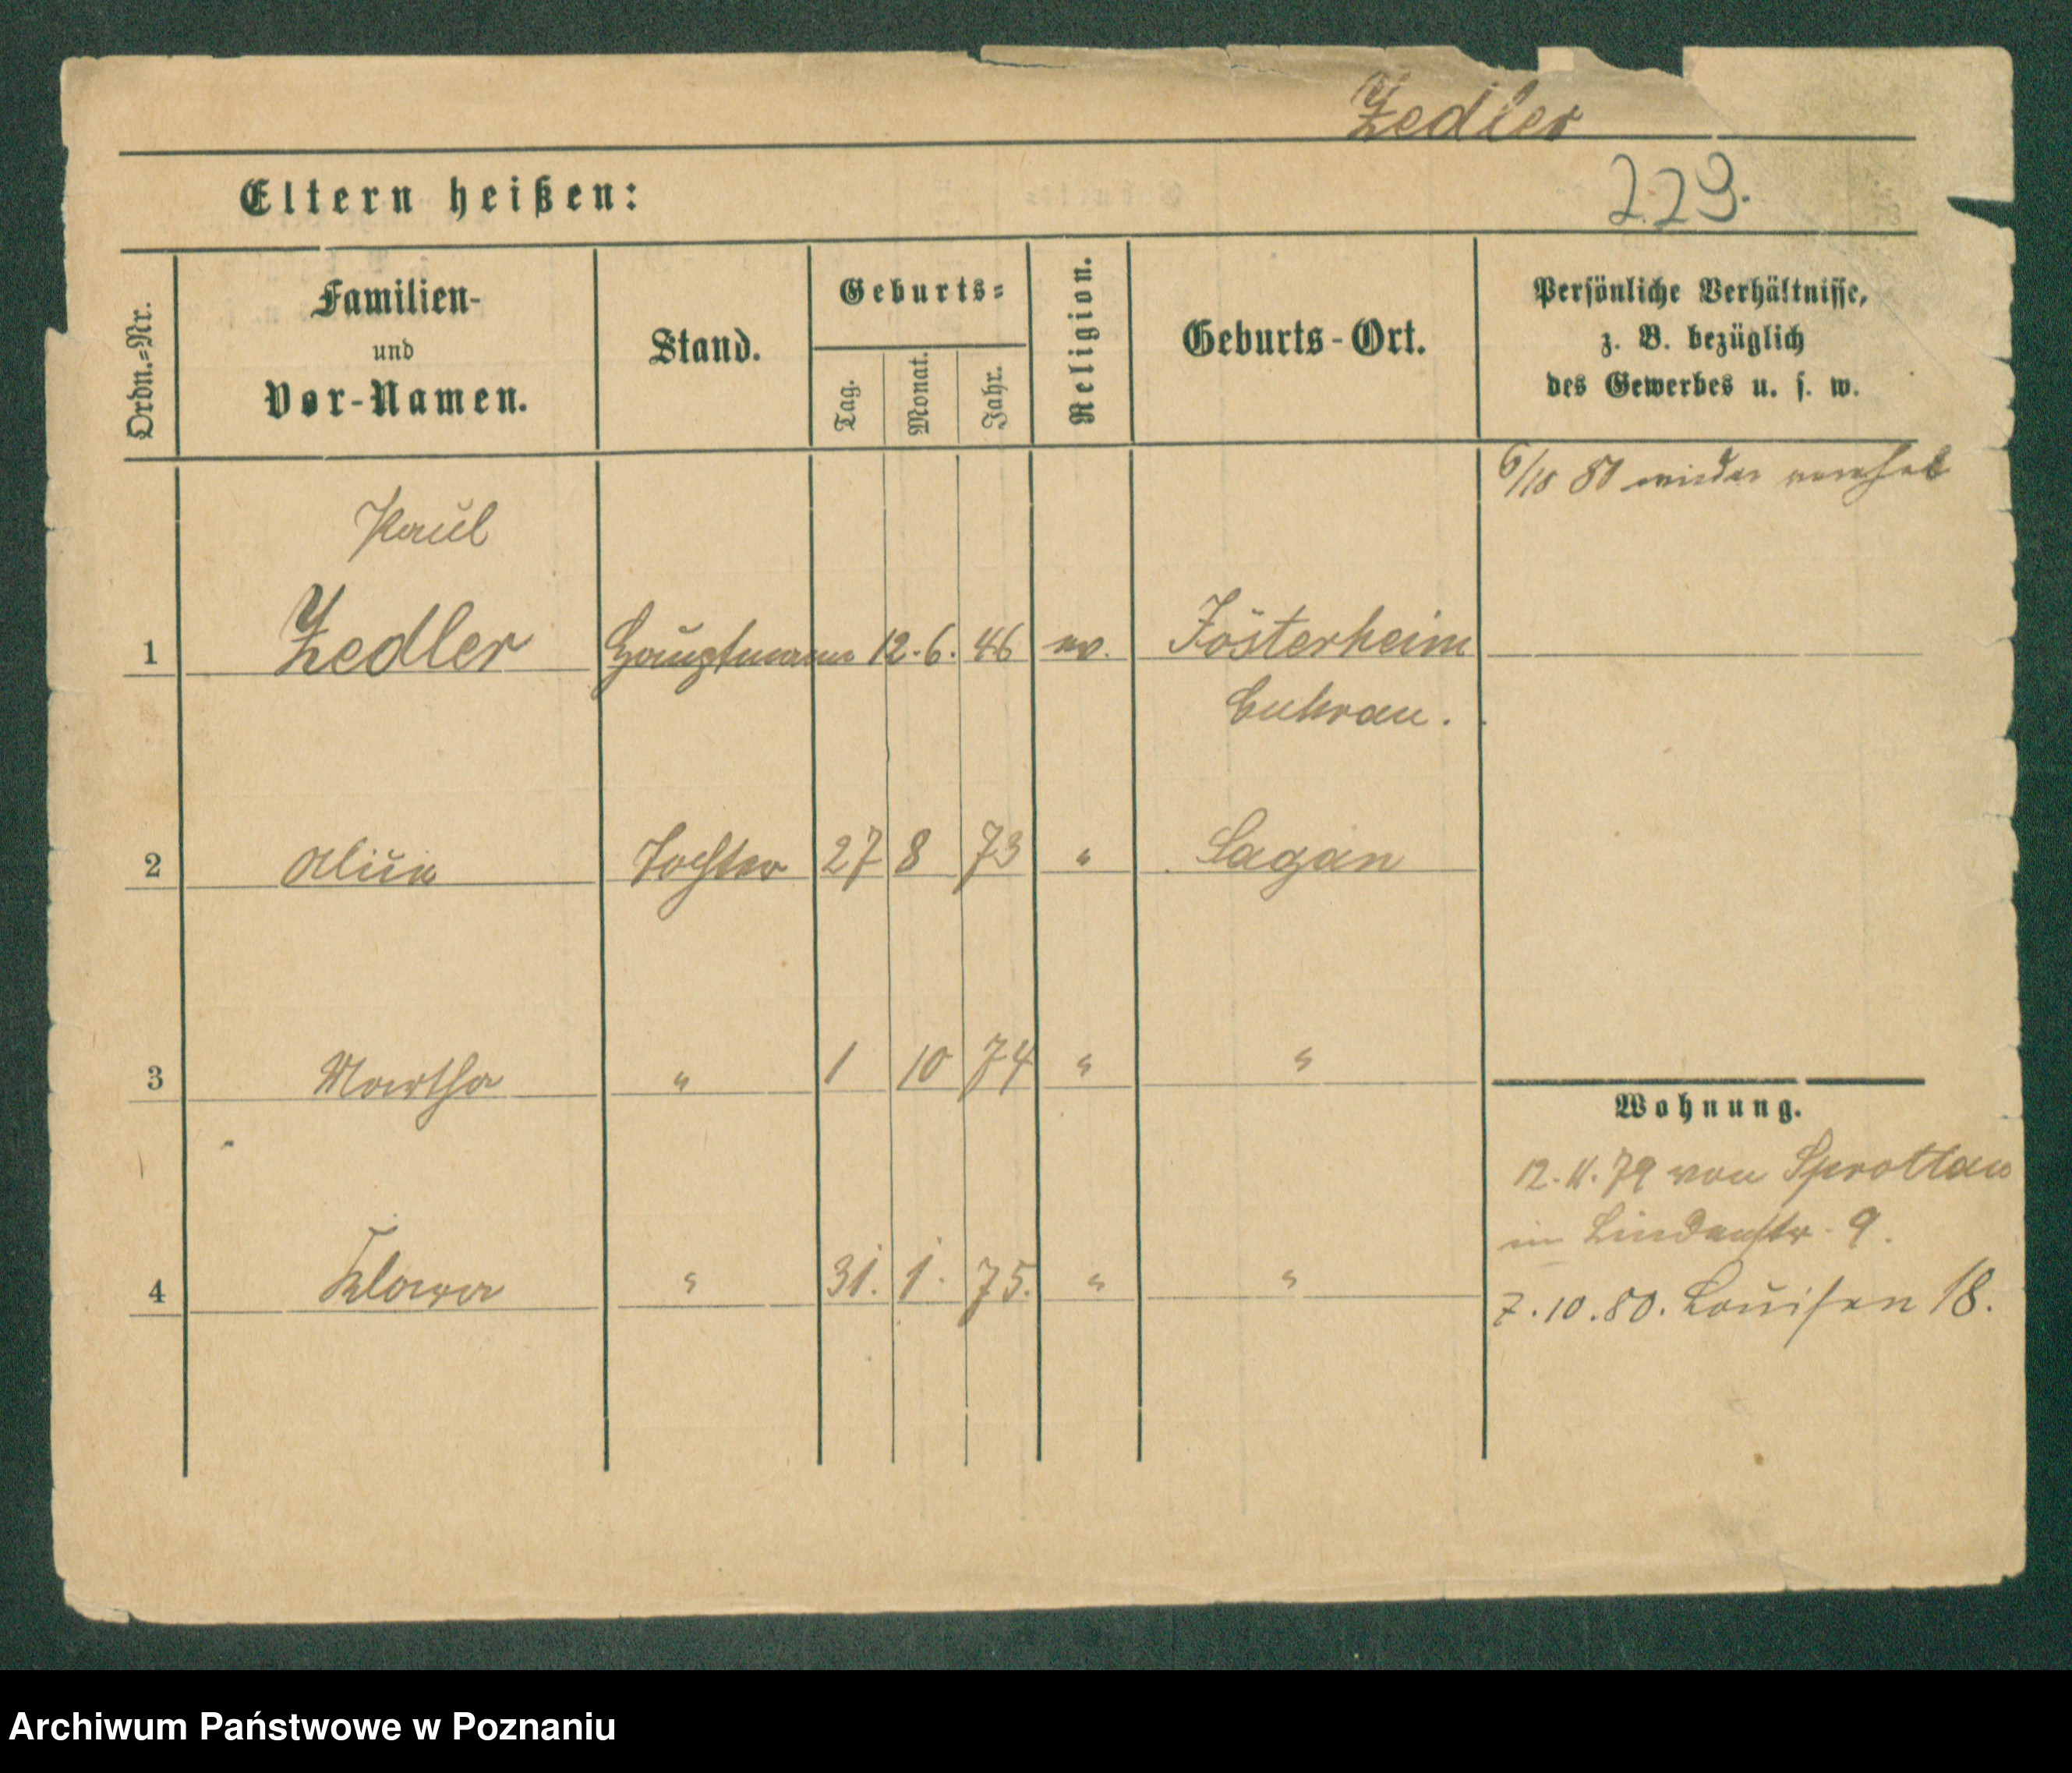 Zedler
229.
Eltern heißen:
Ordn.=Nr.
Familien- und Vor-Namen.
Stand.
Geburts=
Tag.
Monat.
Jahr.
Religion.
Geburts-Ort.
Persönliche Verhältnisse,
z. B. bezüglich
des Gewerbes u. s. w.
6/10 80 wieder
Paul
1 Zedler Hauptmann 12. 6. 46 ev. Jösterheim
Guhrau.
2 Tochter 27 8 73 " Sagan
3 Martha " 1 10 74 " "
4 Klara " 31. 1. 75. " "
Wohnung.
12. 11. 79 von Sprottau
in Lindenstr. 9.
7. 10. 80. Louisen 18.
Archiwum Państwowe w Poznaniu